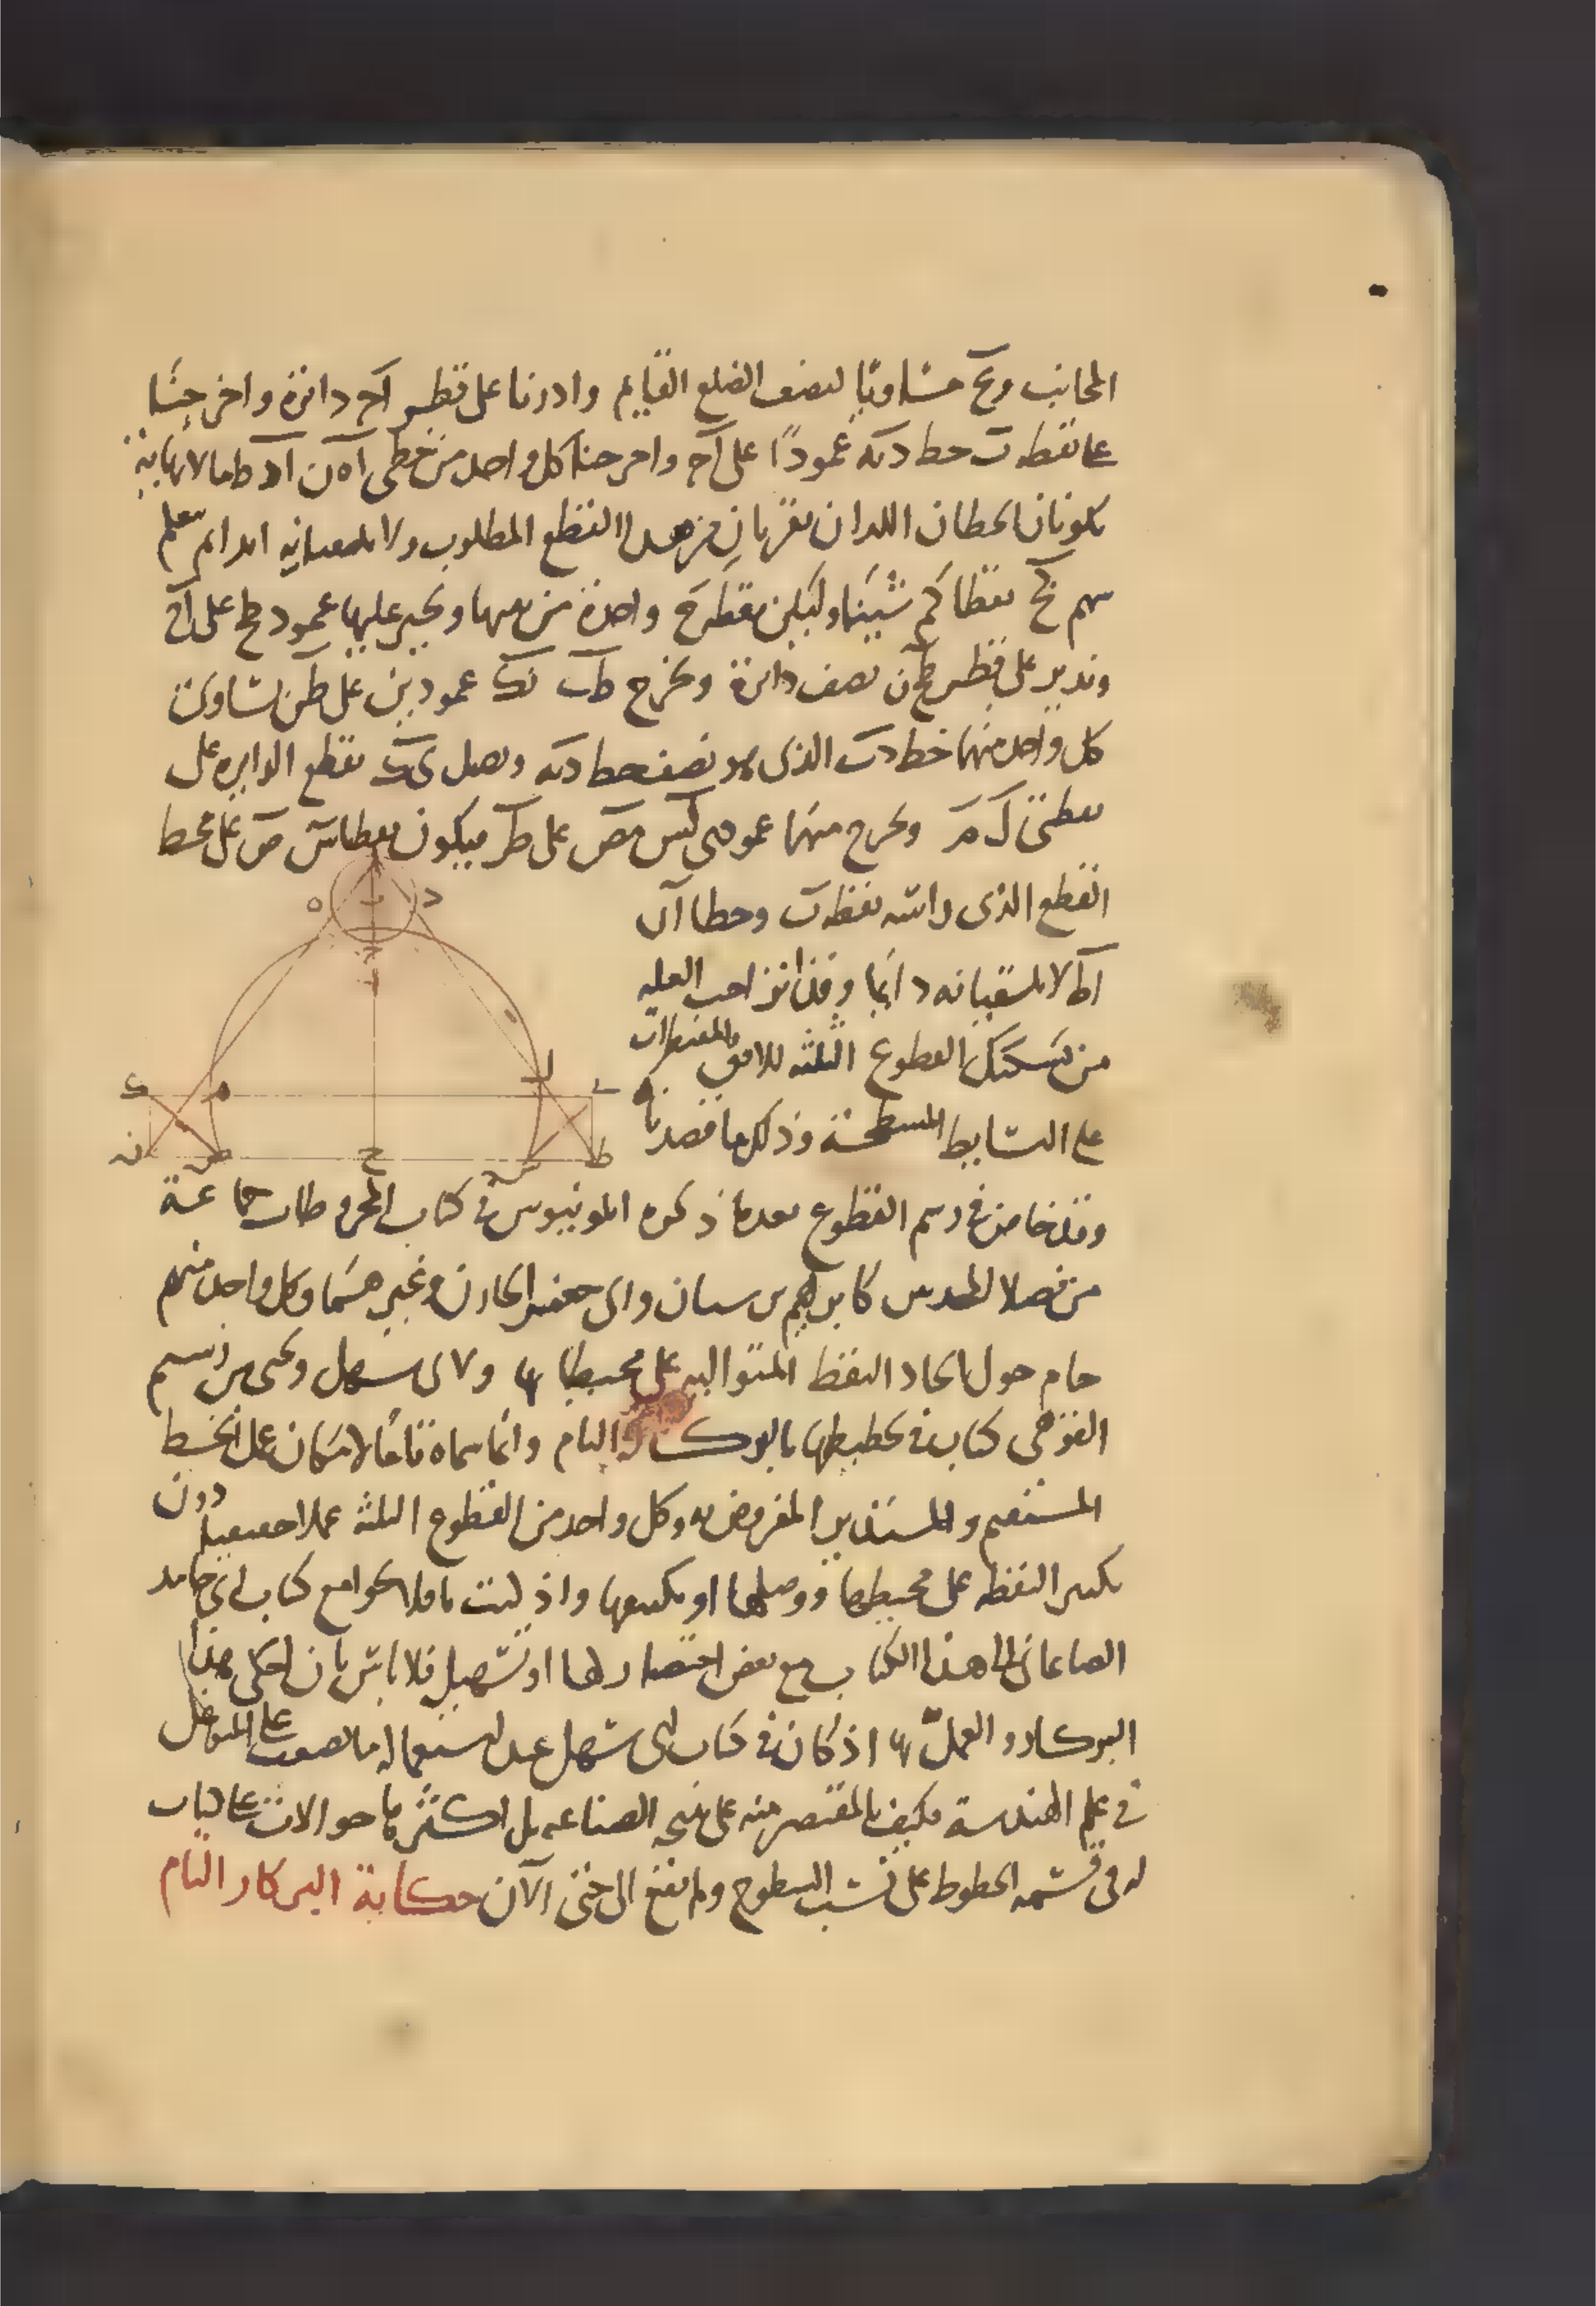 المجانب وبج مساويا لنصف الضلع القايم وادرنا على قطر اج دائرة واخرجنا
على نقطة ب خط دبه عمودا على اج واخرجنا كل واحد من خطى اه ن اد ط الى لا نهاية
يكونان الخطان اللذان يقربان من هذا القطع المطلوب ولا يلقيانه ابدا ثم نعلم
سهم بح نقطا كم شينا وليكن نقطة ح واحدة منها ونجيز عليها عمود طح على اح
وندير على قطر طح ن نصف دائرة ونخرج ط ن عمودين على طن يساوى
كل واحد منهما خط دب الذى هو نصف خط دبه ونصل ى ك يقطع الدايرة على
نقطتى ل م ونخرج منهما عمودى لس مص على ط فيكون نقطتا س ص على محيط
القطع الذى راسه نقطة ب وخطا ان
اط لا يلقيانه دايما وقد انزاحت العلة
من تشكيل القطوع الثلثة للافق والمقنطرات
على البسايط المسطحة وذلك ما قصدناه
وقد خاض فى رسم القطوع بعد ما ذكره ابلونيوس فى كتاب المخروطات جماعة
من فضلا المهندسين كابرهيم بن سنان وابى جعفر الخازن وغيرهما وكل واحد منهم
حام حول ايجاد النقط المتوالية على محيطاتها ولابى سهل ويجن بن رستم
القوهى كتاب فى تخطيطها بالبركار التام وانما سماه تاما لامكان عمل الخط
المستقيم والمستدير المفروض به وكل واحد من القطوع الثلثة عملا حقيقيا دون
تكثير النقطة على محيطها ووصلها او تكسيرها واذ كنت ناقلا جوامع كتاب ابى حامد
الصاغانى الى هذا الكتاب مع بعض اختصار لها او تسهيل فلا باس بان احكى هذا
البركار والعمل به اذ كان فى كتاب ابى سهل عند استعماله ما يصعب على المتوغل
فى علم الهندسة فكيف بالمقتصر منه على نتيجه الصناعه بل اكثر ما حوالاته على كتاب
له فى قسمه الخطوط على نسب السطوح ولم يقع الى حتى الآن حكاية البركار التام